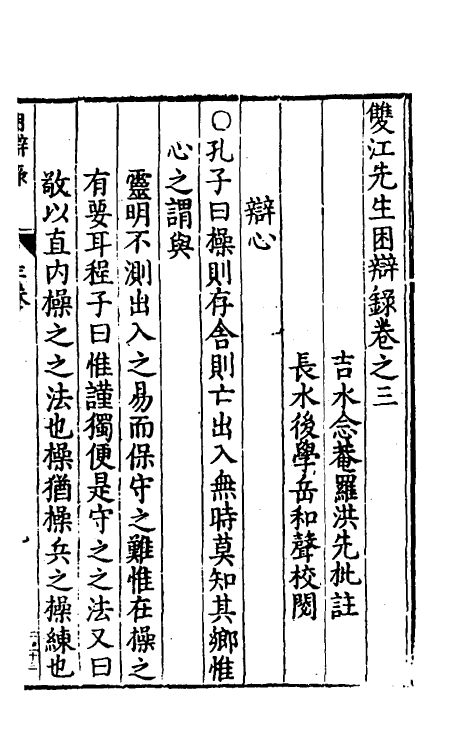 雙江先生困辯錄卷之三
吉水念菴羅洪先批註
長水後學岳和聲校閱
辯心
○孔子曰操則存舍則亡出入無時莫知其鄉惟
心之謂與
靈明不測出入之易而保守之難惟在操之
有要耳程子曰惟謹獨便是守之之法又曰
敬以直内操之之法也操猶操兵之操練也
辯錄